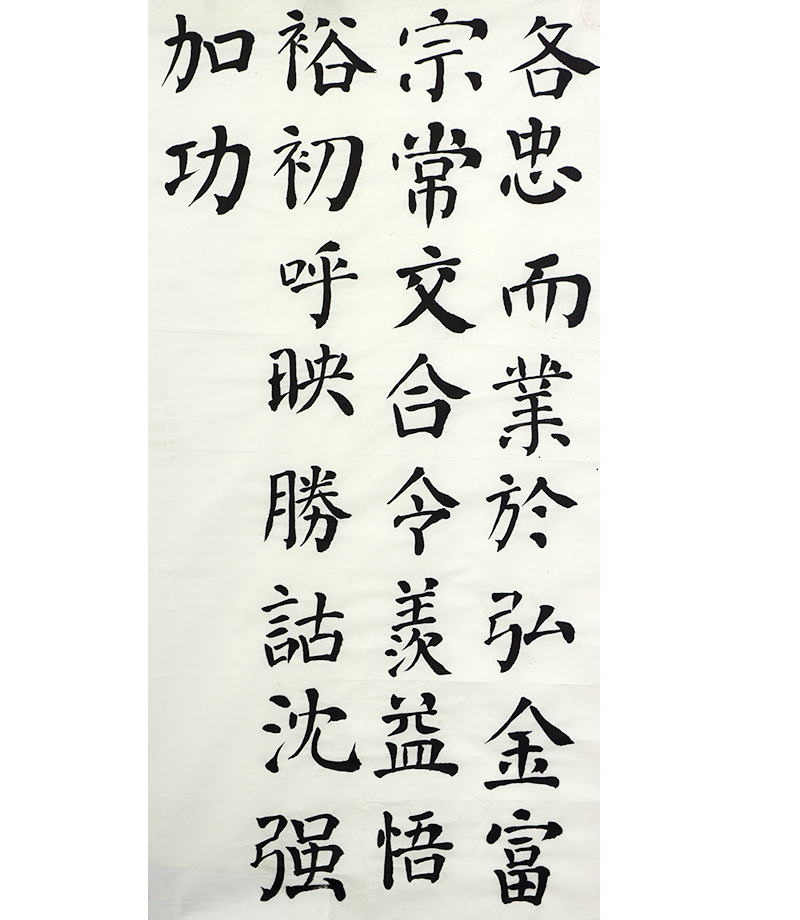 各忠而業於弘金富
宗常交合令羨益悟
裕初呼映勝詁沈强
加功